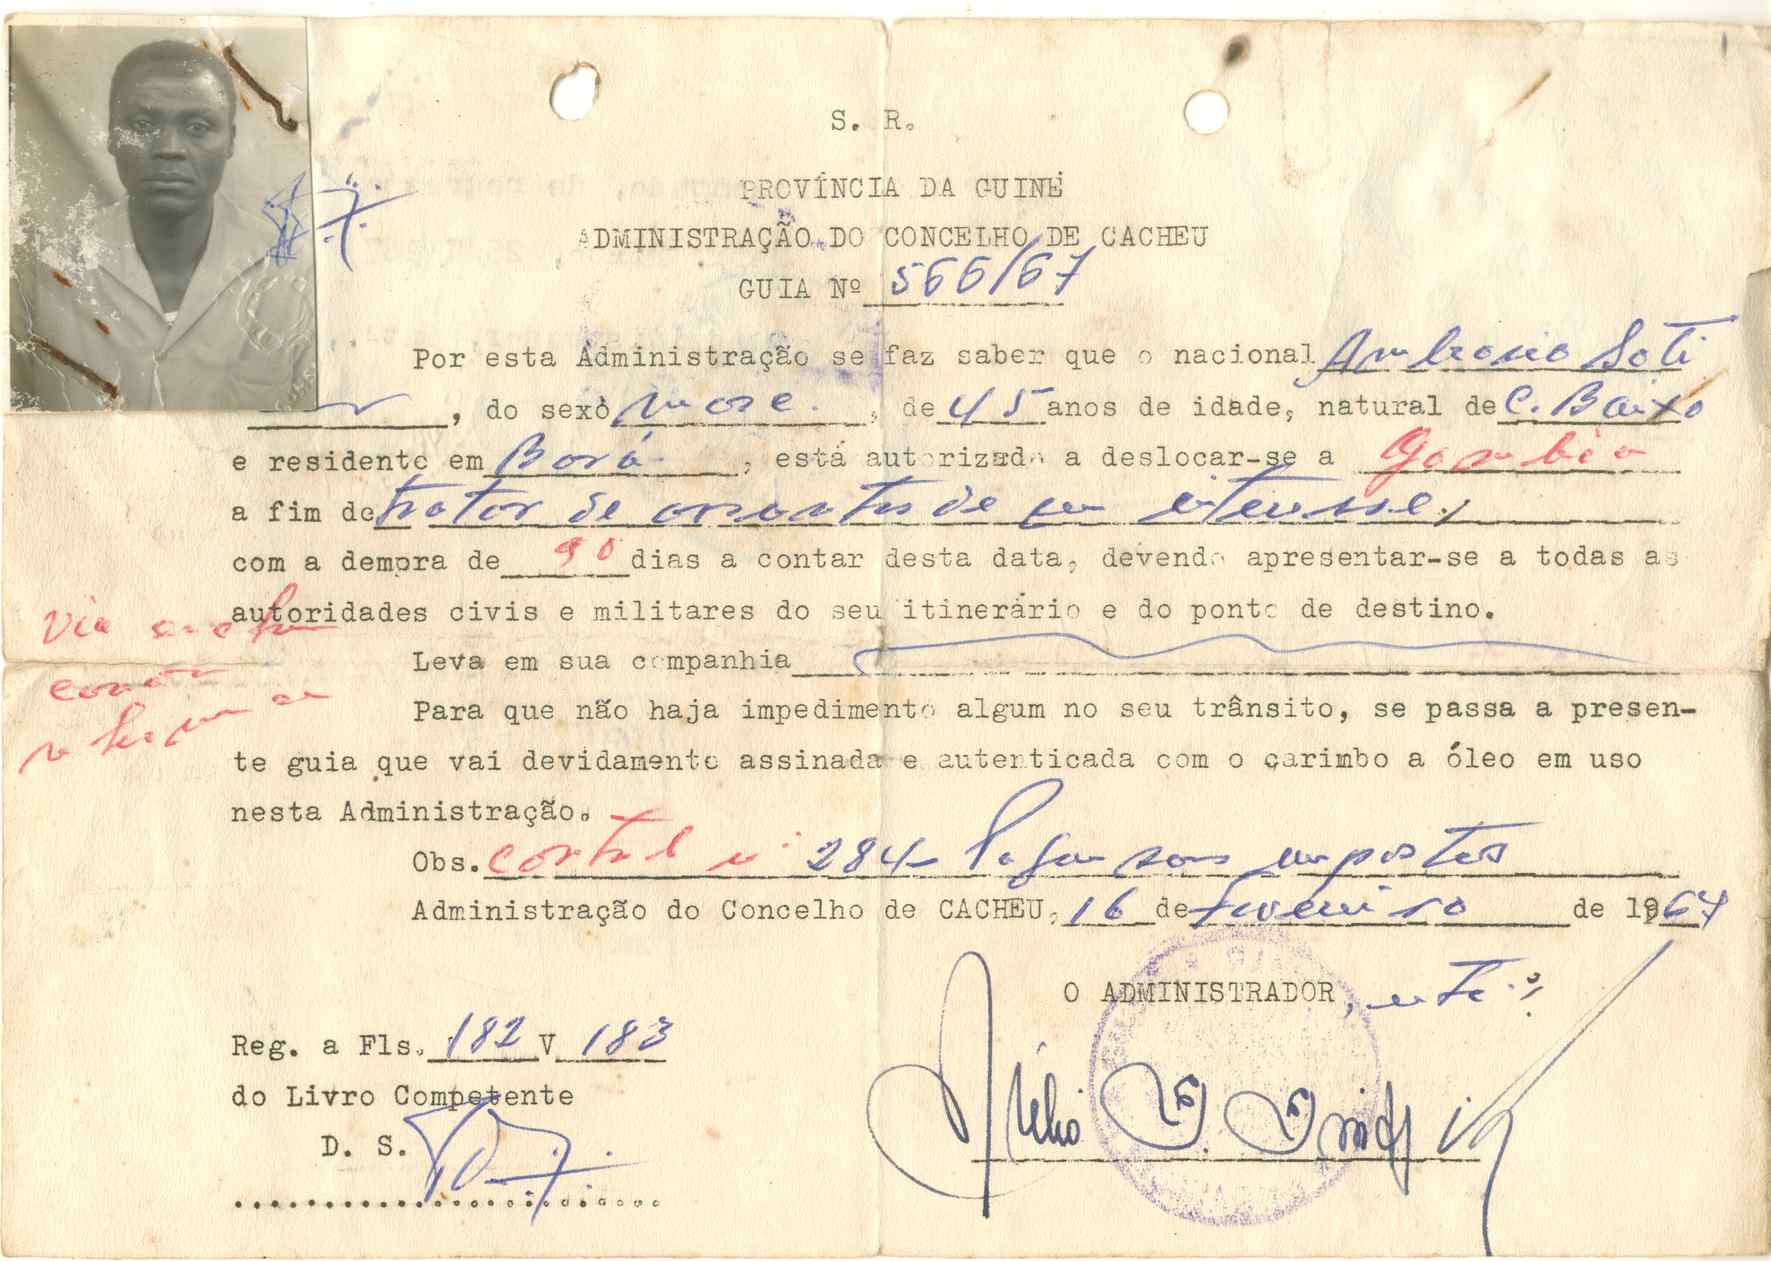 S. R.
PROVÍNCIA DA GUINÉ
ADMINISTRAÇÃO DO CONCELHO DE CACHEU
GUIA Nº 566/67
Por esta Administração se faz saber que o nacional Ambrosio Soti
, do sexo masc. , de 45 anos de idade, natural de C. Baixo
e residente em Borá , está autorizado a deslocar-se a Gambia
a fim de tratar de assuntos de seu interesse,
com a demora de 90 dias a contar desta data, devendo apresentar-se a todas as
autoridades civis e militares do seu itinerário e do ponto de destino.
Via
Leva em sua companhia
Para que não haja impedimento algum no seu trânsito, se passa a presen-
te guia que vai devidamente assinada e autenticada com o carimbo a óleo em uso
nesta Administração.
Obs. 284 Pagou seus impostos
Administração do Concelho de CACHEU, 16 de Fevereiro de 1967
O ADMINISTRADOR,
Reg. a Fls. 182 V 183
do Livro Competente
D. S.
Júlio